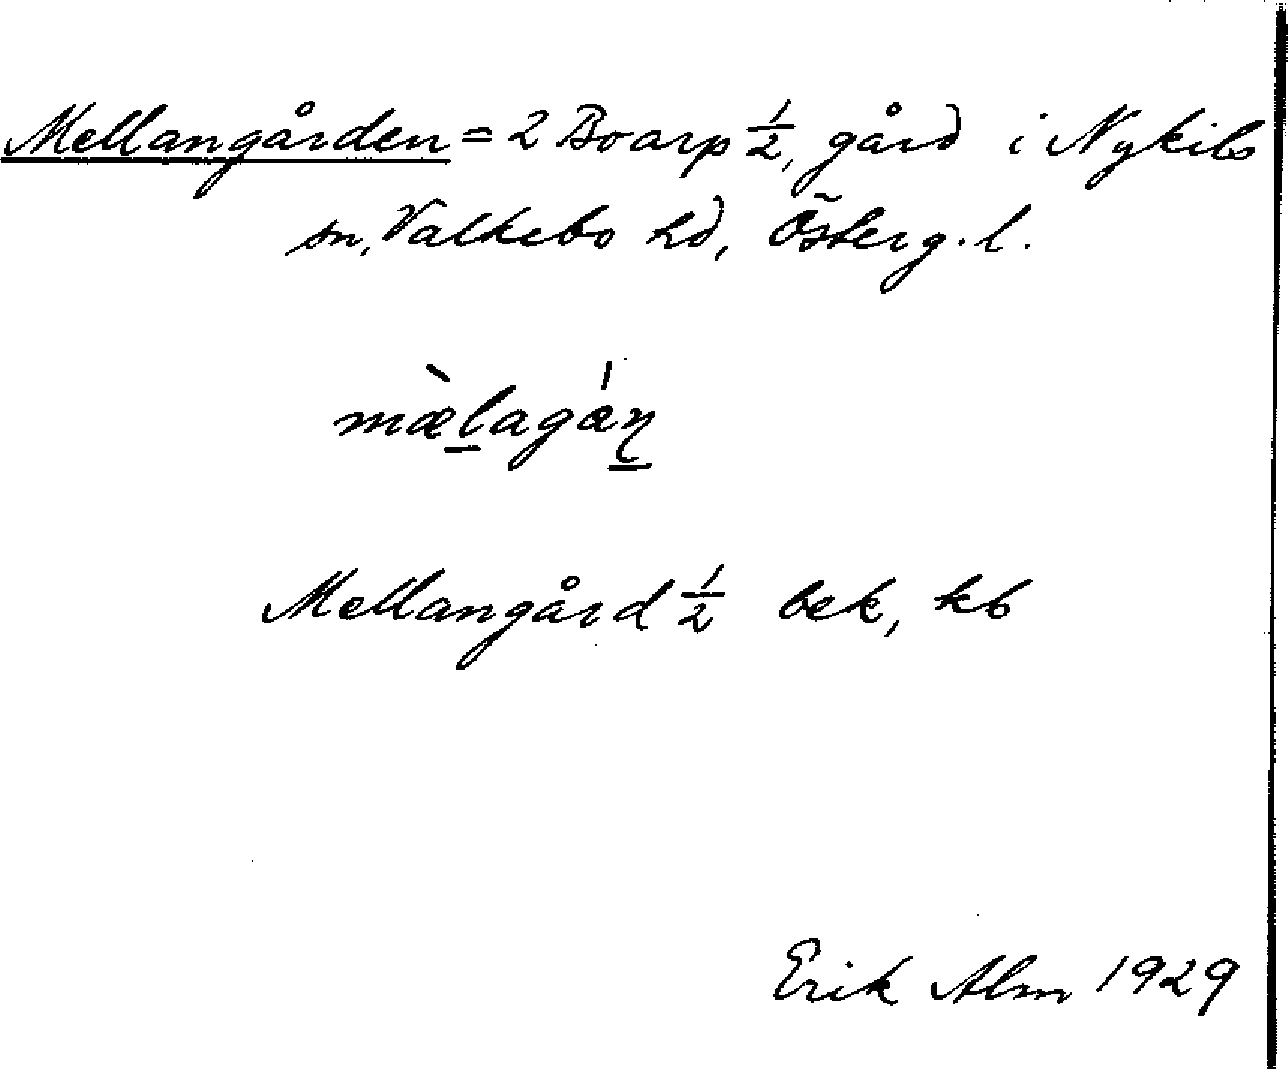 Mellangården = 2 Boarp 1/2, gård i Nykils
sn, Valkebo hd, Österg. l.
mæ̀l̲agǽn̲
Mellangård 1/2 bek, kb
Erik Alm 1929